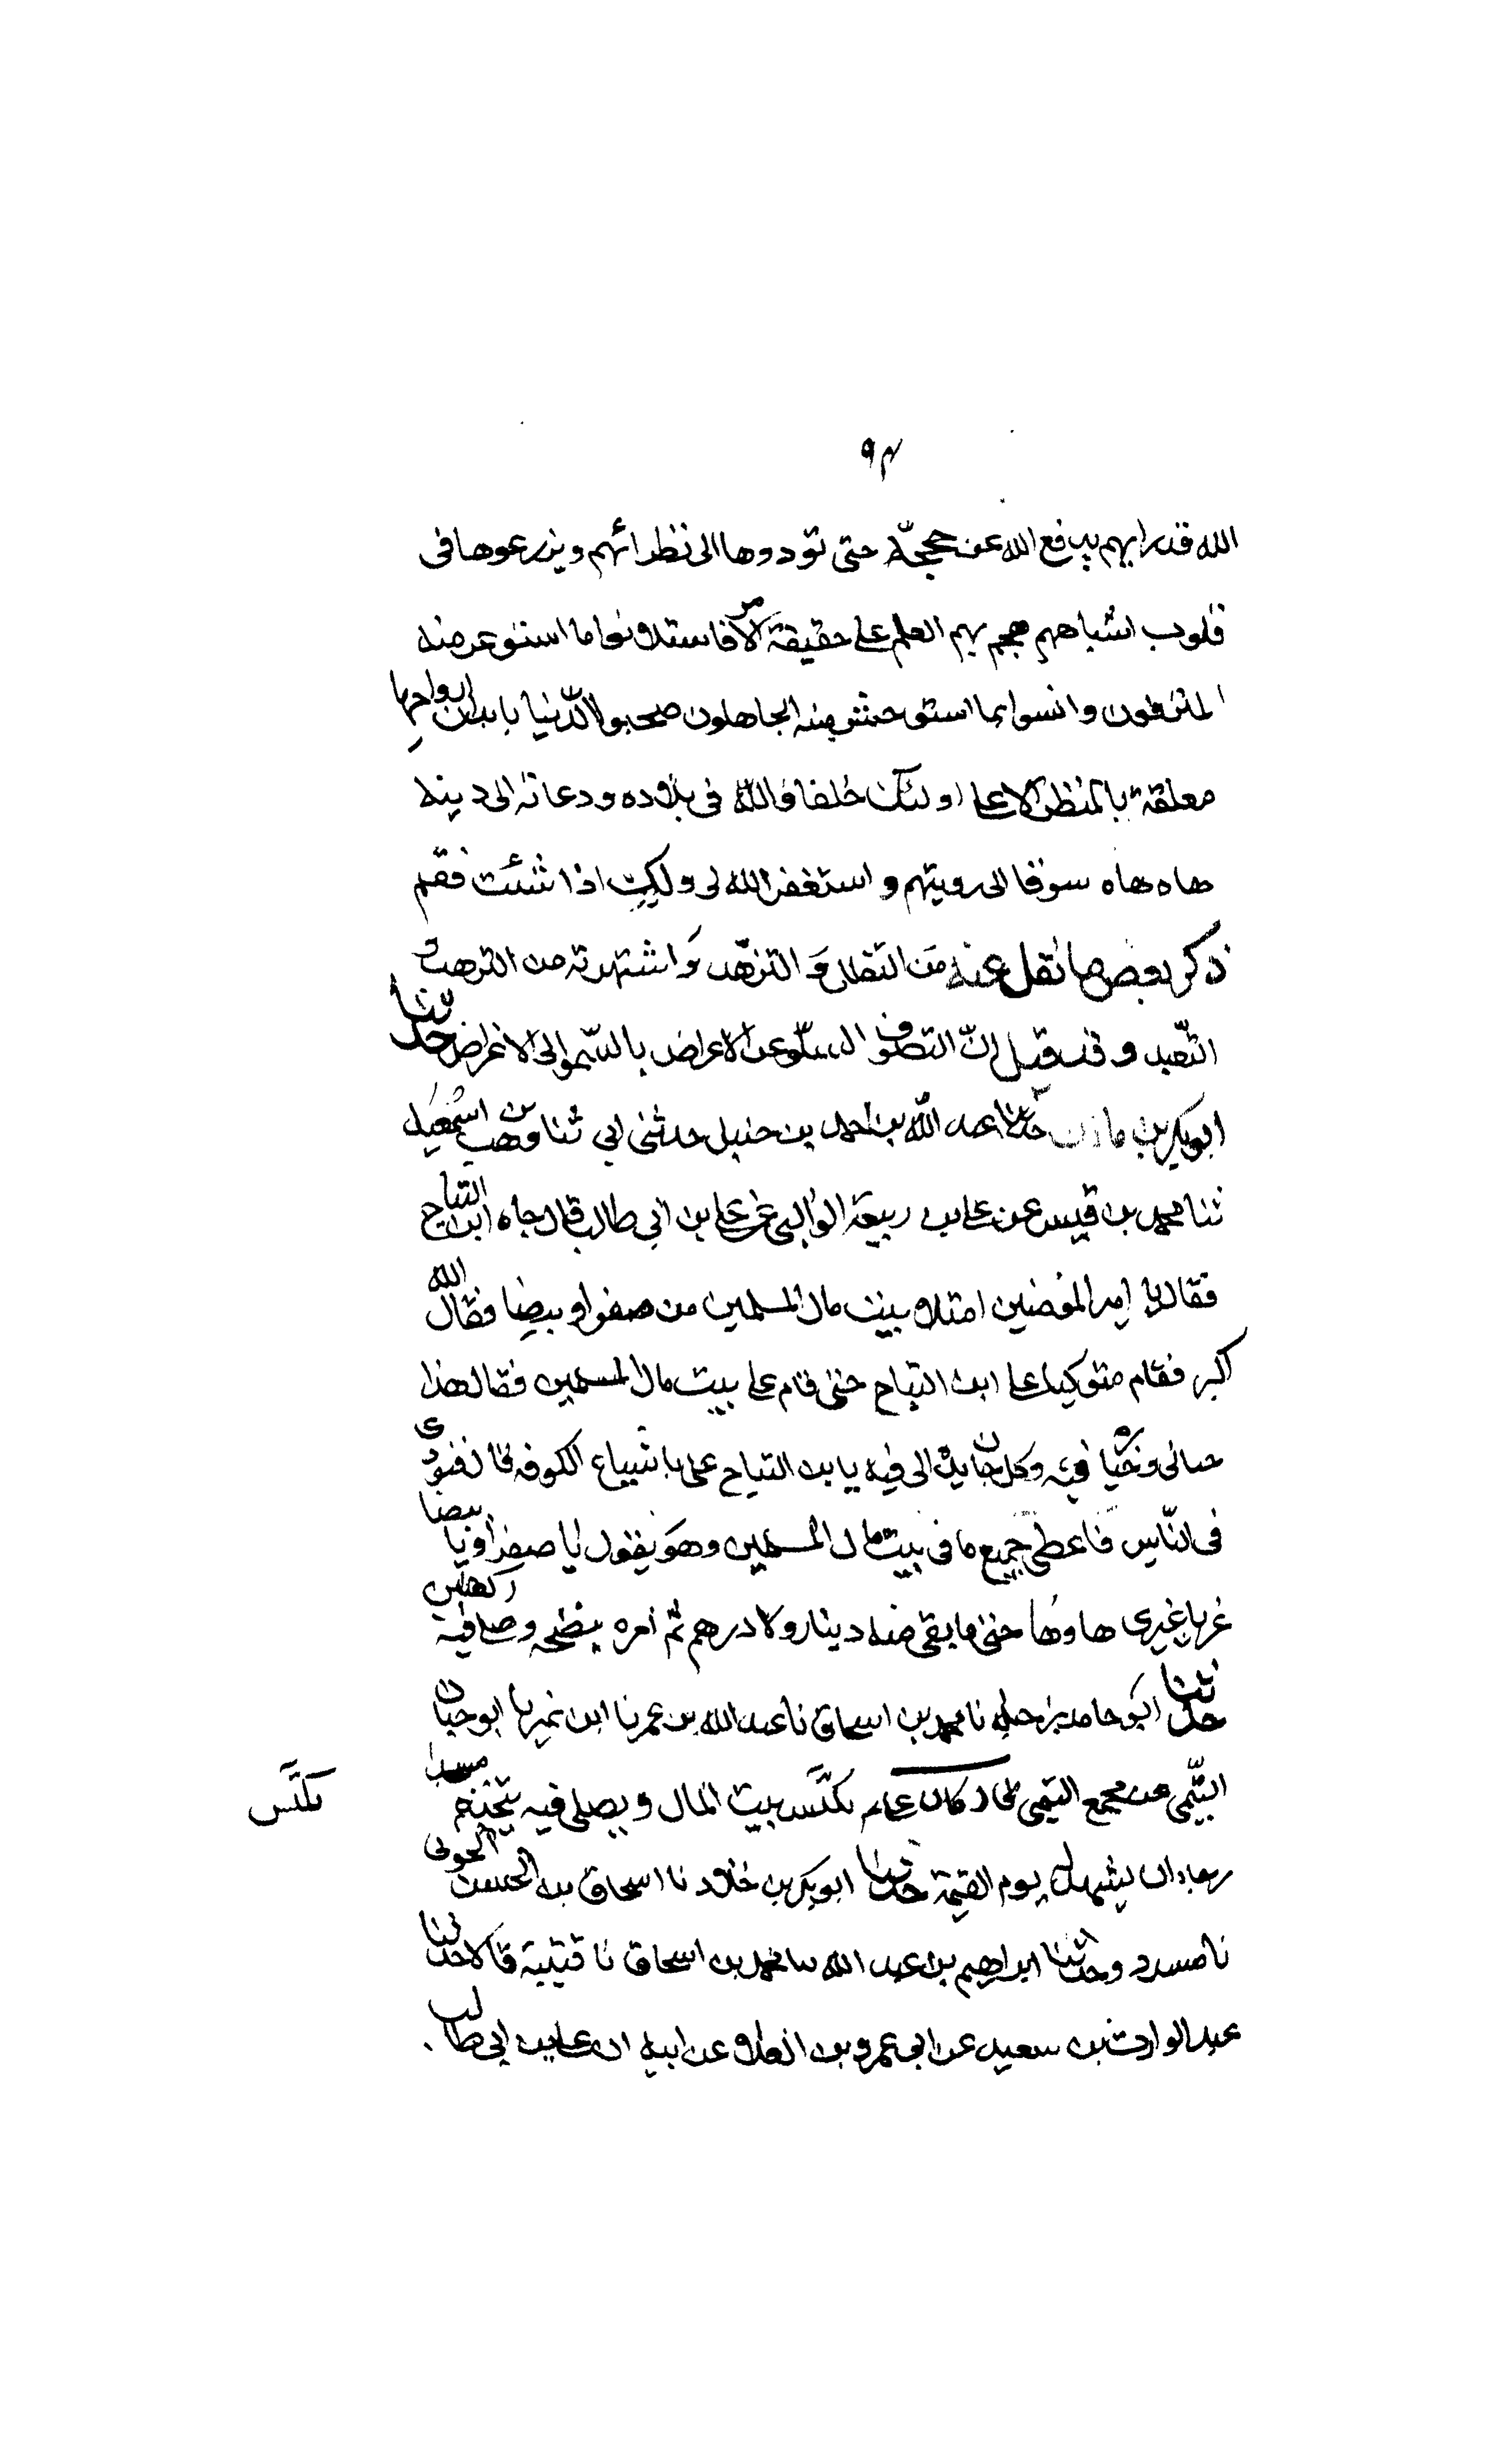 ٩٤
الله قدرا بهم يدفع الله عن حججه حتى تؤدوها الى نظرائهم ويزرعوها فى
قلوب اشباههم هجم بهم العلم على حقيقة الامر فاستلانوا ما استوعر منه
المترفون وانسوا بما استوحش منه الجاهلون صحبوا الدّنيا بابدان ارواحها
معلقة بالمنظر الاعلى اولئك خلفاء الله فى بلاده ودعاته الى دينه
هاه هاه سوقا الى رويتهم واستغفر الله لى ولك اذا شئت فقم
ذكر بعض ما نقل عنه من التقلل و التزهّد و اشتهر به من الترهب و
التّعبد و قد قيل انّ التصوف السلوّ عن الاعراض بالسّمو الى الاغراض حدثنا
ابو بكر بن حدثنا عبد الله بن احمد بن حنبل حدثنى ابى ثنا وهب بن اسمعيل
ثنا محمد بن قيس عن على بن ربيعة الوالبى عن على بن ابى طالب قال جاه ابن التياح
فقال يا امير المؤمنين امتلا بيت مال المسلمين من صفرا و بيضا فقال الله
اكبر فقام متوكيا على ابن التياح حتى قام على بيت مال المسلمين فقال هذا
جناى و خياره فيه وكل جان يده الى فيه يا بن التياح على باشياع الكوفه قال فنودى
فى النّاس فاعطى جميع ما فى بيت مال المسلمين وهو يقول يا صفرا و يا بيضا
غرى غيرى ها وها حتى ما بقى منه دينار ولا درهم ثم امره بنضحه وصلى فيه ركعتين
حدثنا ابو حامد بن جبله نا محمد بن اسحاق نا عبد الله بن عمر نا ابن نمير نا ابو حيان
التّيمى عن مجمع التيمى قال كان على يكنّس بيت المال ويصلى فيه يتخذه مسجدا
يكنّس
رجاء ان يشهد له يوم القيمة حدثنا ابو بكر بن خلاد نا اسحاق بن الحسن الحربى
نا مسدد وحدثنا ابراهيم بن عبد الله نا محمد بن اسحاق نا قتيبة قالا حدثنا
عبد الوارث بن سعيد عن ابى عمرو بن العلا عن ابيه ان على بن ابى طالب